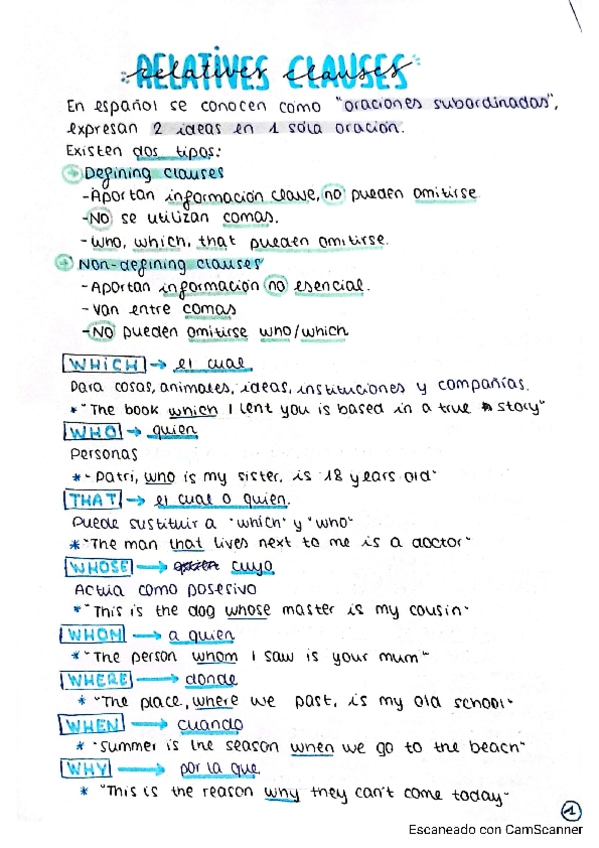 RELATIVES CLAUSES
relatives clauses
En español se conocen como "oraciones subordinadas",
expresan 2 ideas en 1 sola oración.
Existen dos tipos:
→ Defining clauses
-Aportan información clave, no pueden omitirse.
-NO se utilizan comas.
-Who, which, that pueden omitirse.
→ Non-defining clauses
-Aportan información no esencial.
-Van entre comas
-NO pueden omitirse who/which
WHICH → el cual
Para cosas, animales, ideas, instituciones y compañías.
* "The book which I lent you is based in a true story"
WHO → quien
Personas
* "Patri, who is my sister, is 18 years old"
THAT → el cual o quien.
Puede sustituir a "which" y "who"
* "The man that lives next to me is a doctor"
WHOSE → cuyo
Actúa como posesivo
* "This is the dog whose master is my cousin"
WHOM → a quien
* "The person whom I saw is your mum"
WHERE → donde
* "The place, where we past, is my old school"
WHEN → cuando
* "Summer is the season when we go to the beach"
WHY → por la que
* "This is the reason why they can't come today"
1
Escaneado con CamScanner